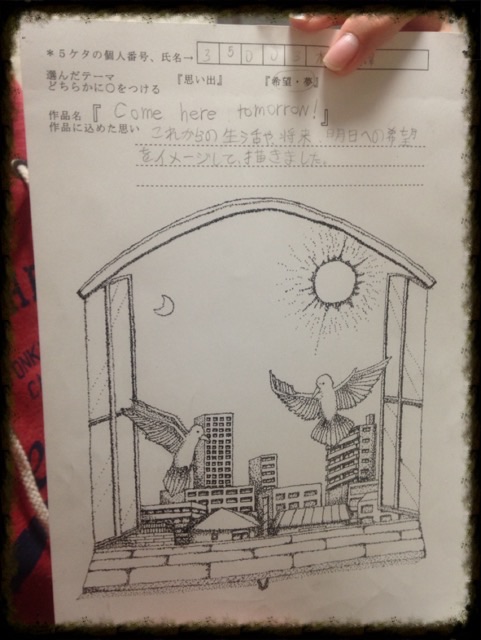 *5ケタの個人番号、氏名→ 3 5 0 0 3
選んだテーマ 『思い出』 『希望・夢』
どちらかに○をつける
作品名『 Come here tomorrow! 』
作品に込めた思い これからの生活や、将来 明日への希望
をイメージして、描きました。